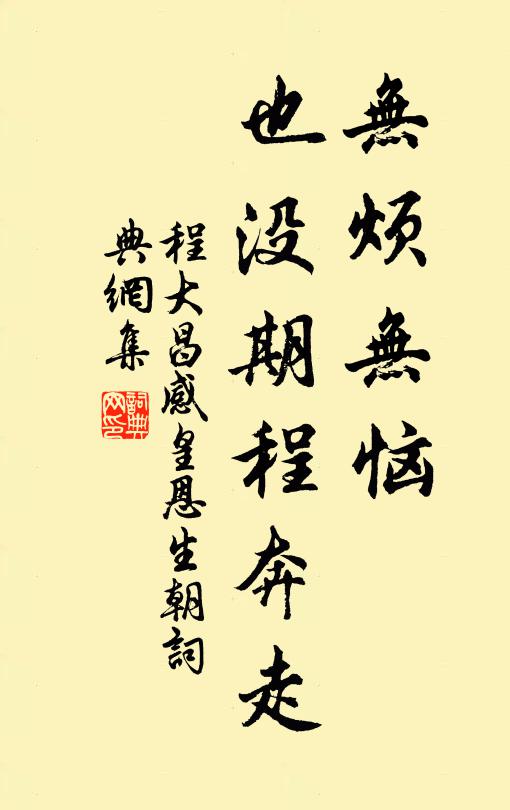 無煩無恼
也没期程奔走
程大昌感皇恩生朝詞
典網集
詞典网印